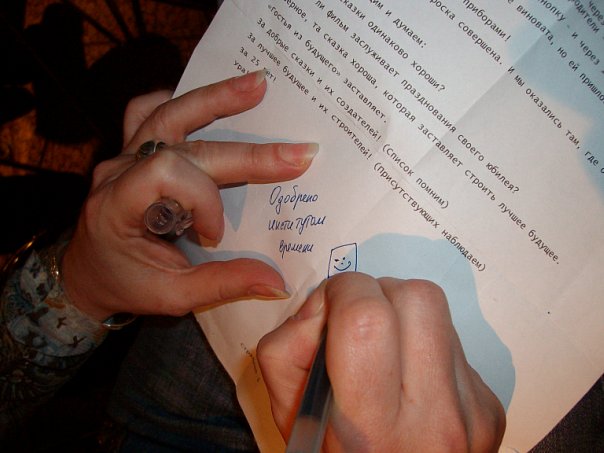 через
кнопку - и через
виновата, но ей пришло
приборами!
роска совершена. и мы оказались там, где о
и думаем:
сказки одинаково хороши?
верное, та сказка хороша, которая заставляет строить лучшее будущее.
ли фильм заслуживает празднования своего юбилея?
«гостья из будущего» заставляет.
За добрые сказки и их создателей! (Список помним)
За лучшее будущее и их строителей! (присутствующих наблюдаем)
За 25 лет!
Ура
Одобрено
институтом
времени